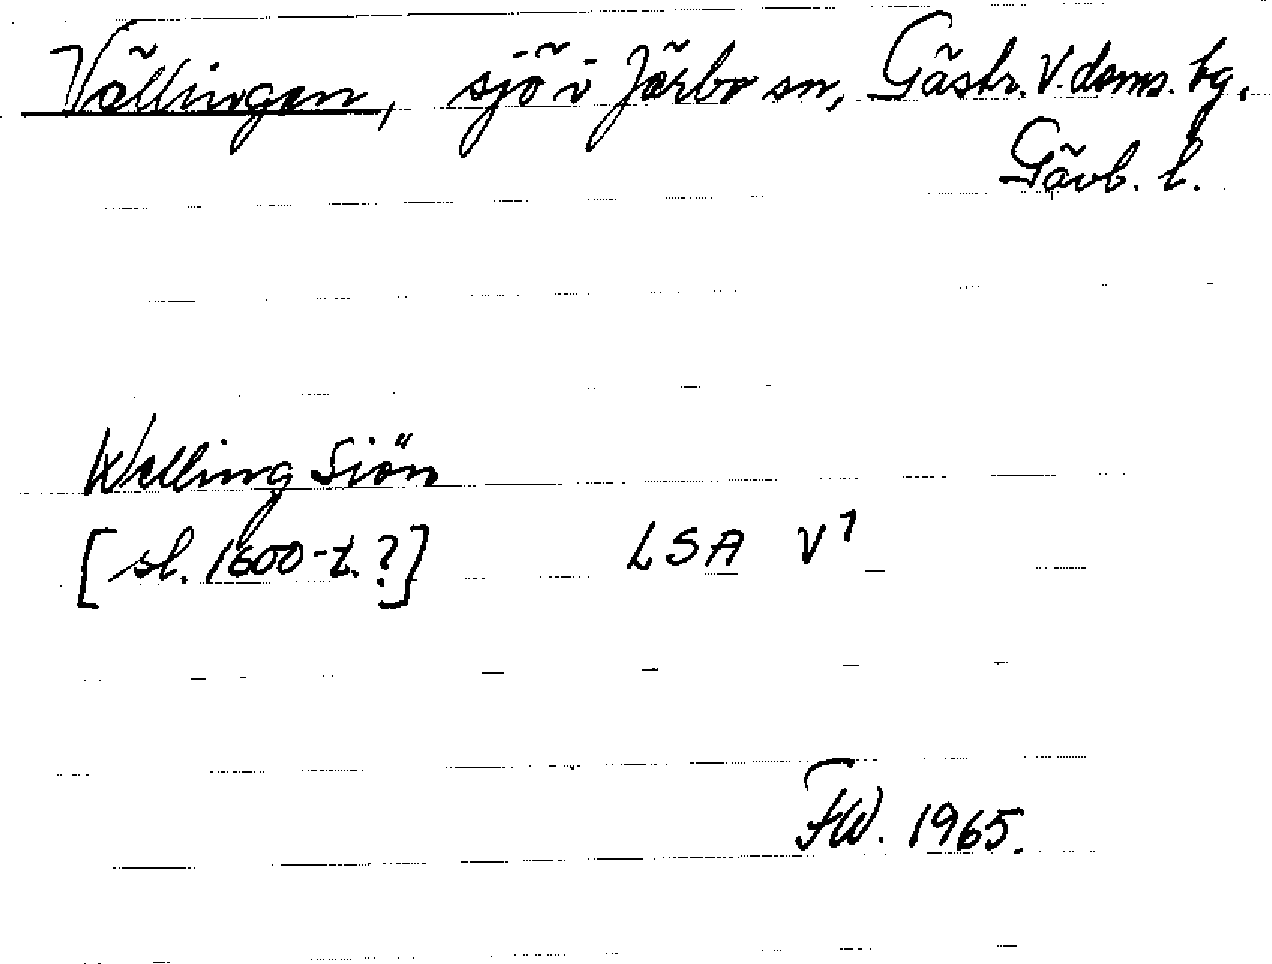 Vällingen, sjö i Järbo sn, Gästr. V. doms. tg.
Gävb. l.
Welling Siön
[sl. 1600-t.?] LSA V1
FW. 1965.